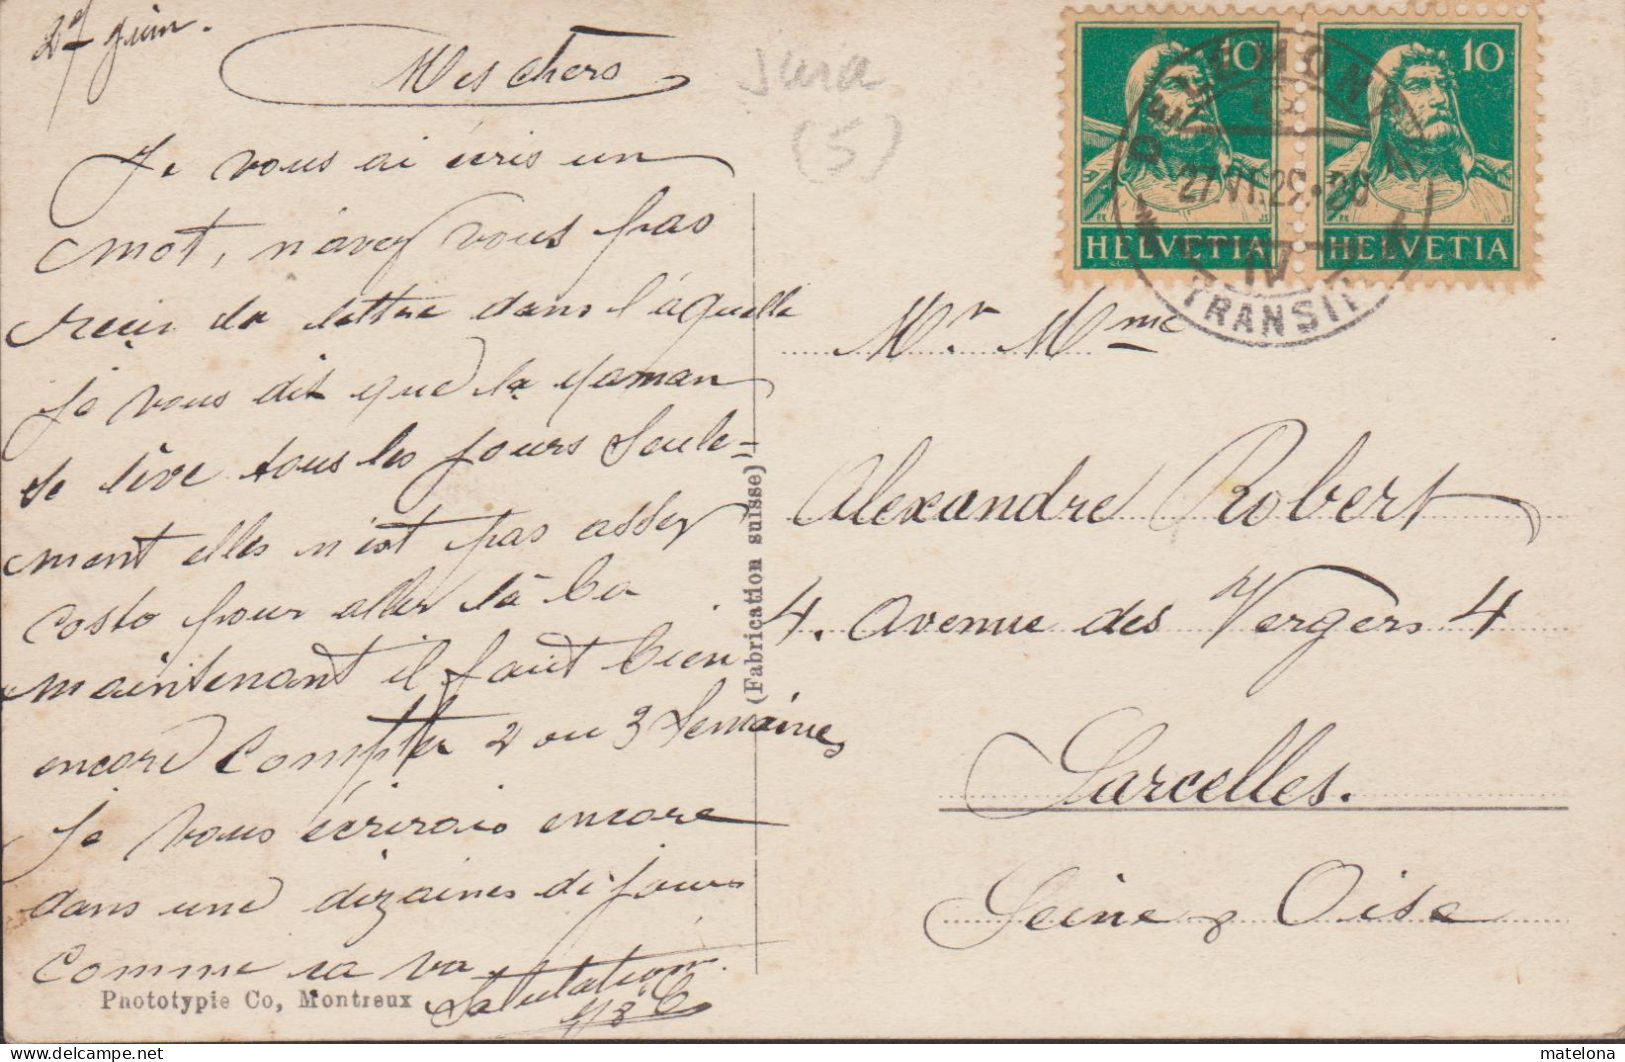 27 Juin.
Mes chers
Jura
(5)
Je vous ai écris un
mot, n'avez vous pas
reçus la lettre dans l'aquelle
je vous dit que la maman
se lève tous les jours Seule-
ment elles n'est pas assez
costo pour aller là ba
maintenant il faut bien
encore Compter 2 ou 3 Semaines
Je vous écrirais encore
dans une dizaines de jours
comme sa va
Salutation
Phototypie Co, Montreux
(Fabrication suisse)
10
10
HELVETIA
HELVETIA
27.VI.29.-20
IV
TRANSIT
Mr. Mme
Alexandre Robert
4. Avenue des Vergers 4
Sarcelles.
Seine & Oise
delcampe.net
matelona